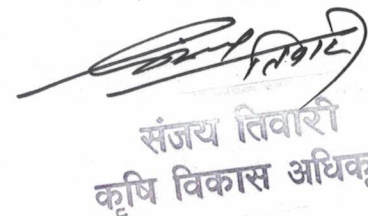 तिवारी
संजय तिवारी
कृषि विकास